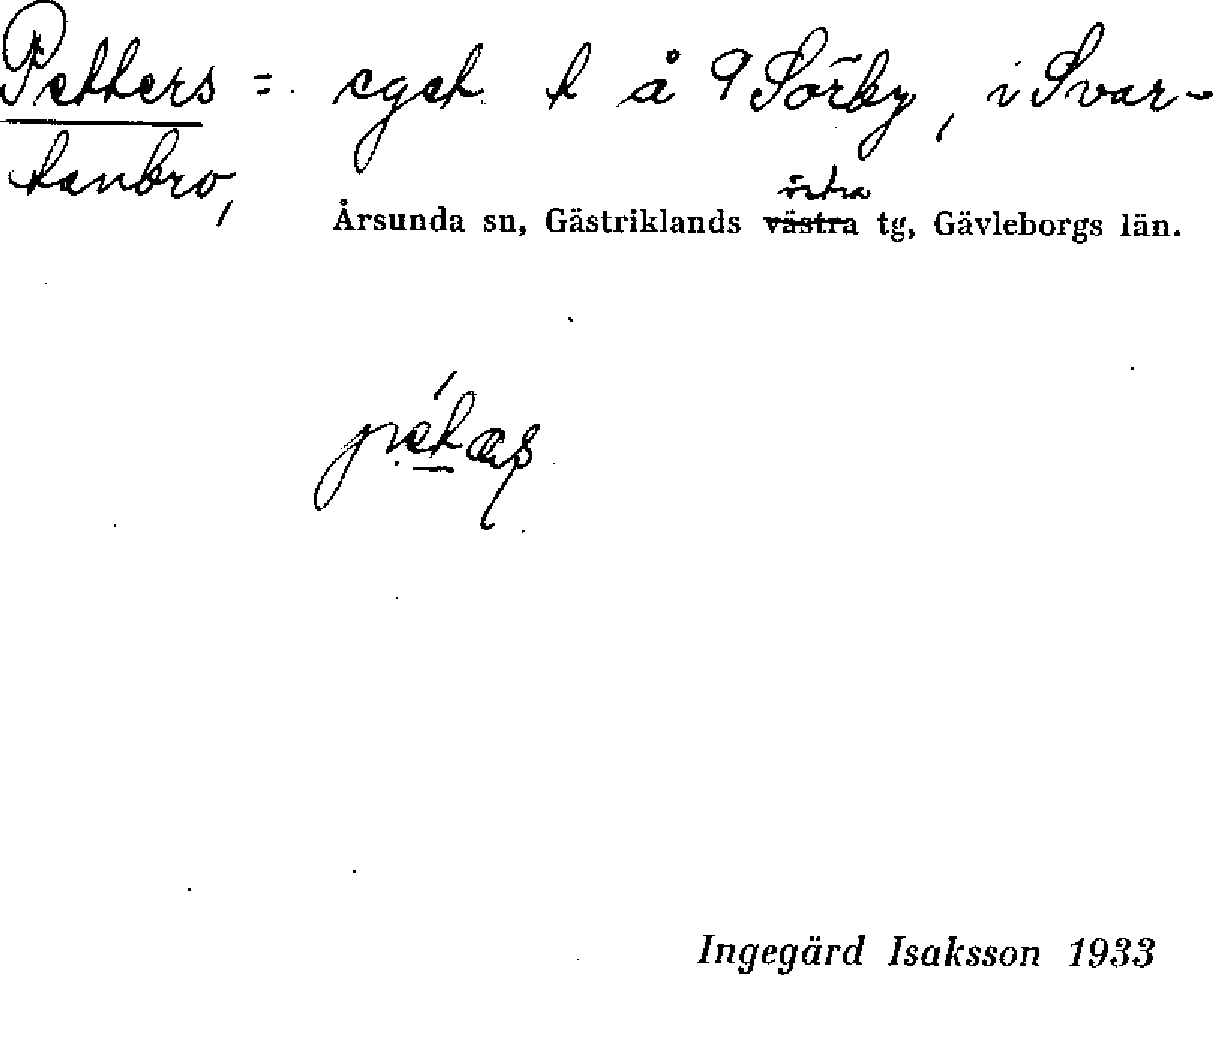 Petters = eget. t å 9 Sörby, i Svar-
tanbro,
östra
Årsunda sn, Gästriklands västra tg, Gävleborgs län.
Ingegärd Isaksson 1933